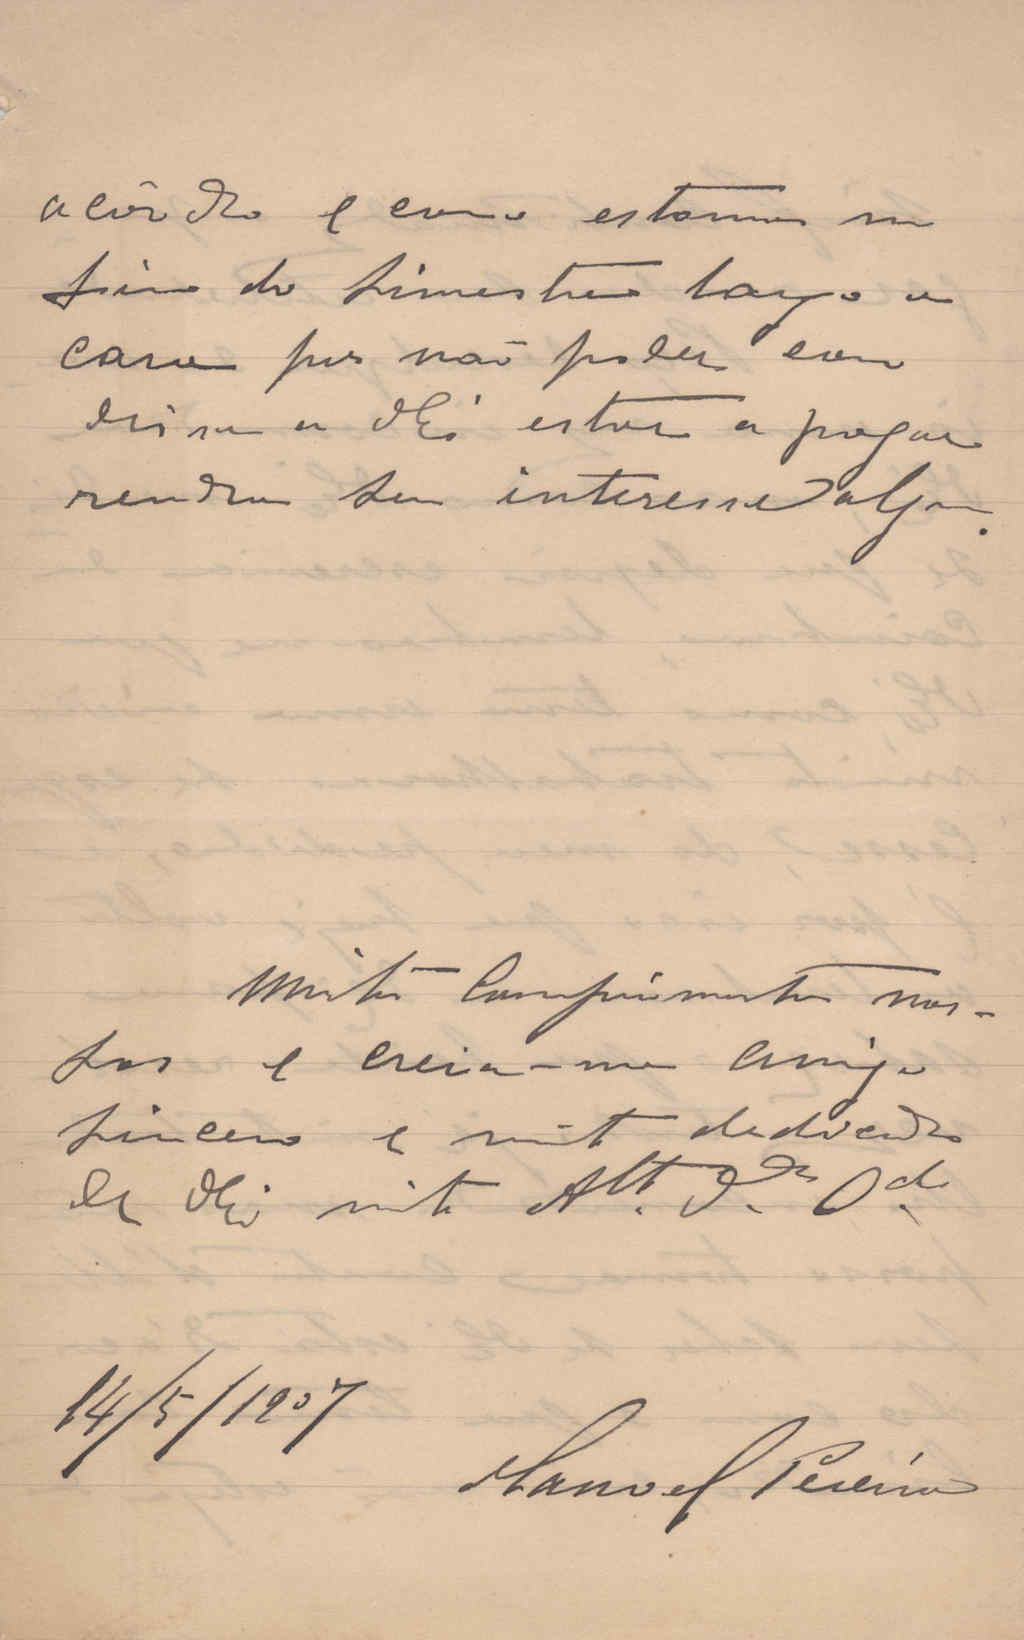 acôrdo e como estamos no
fim do simestre largo a
casa por não poder con
a estar a pagar
renda sem interesse algum.
Muitos Cumprimentos nos-
sos e creia-me amigo
sincero e muito dedicado
de mto Attº. Vdor Odo
14/5/1907
Manoel Pereira